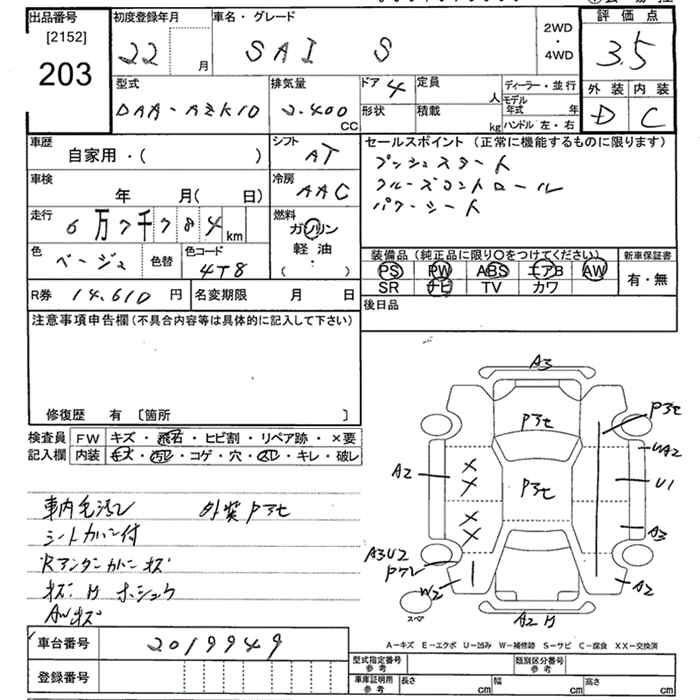 出品番号
[2152]
203
初度登録年月
22 月
車名・グレード
SAI S
2WD
・
4WD
評価点
3.5
外装 内装
D C
型式
DAA-AZK10
排気量
2.400 CC
ドア 4
形状
定員 人
積載 kg
ディーラー・並行
モデル年式 年
ハンドル 左・右
車歴
自家用・( )
シフト
AT
車検
年 月( 日)
冷房
AAC
走行
6万7千784 km
燃料
ガソリン
軽油
( ・ )
色
ベージュ
色替
色コード
4T8
R券 14,610 円
名変期限 月 日
セールスポイント (正常に機能するものに限ります)
プッシュスタート
クルーズコントロール
パワーシート
装備品 (純正品に限り○をつけてください)
PS PW ABS エアB AW
SR ナビ TV カワ
新車保証書
有・無
後日品
注意事項申告欄 (不具合内容等は具体的に記入して下さい)
修復歴 有 〔箇所 〕
検査員記入欄
FW キズ・飛石・ヒビ割・リペア跡・×要
内装 キズ・汚レ・コゲ・穴・スレ・キレ・破レ
シートカバー付
Rアンダーカバーキズ
AWキズ
A3
P3セ
P3セ
P3セ
UA2
U1
A3
A2
A2
A3U2
W2
A2
スペア
A-キズ E-エクボ U-凹み W-補修跡 S-サビ C-腐食 XX-交換済
車台番号 2019949
登録番号
型式指定番号 参考
類別区分番号 参考
車庫証明用 参考
長さ cm
幅 cm
高さ cm